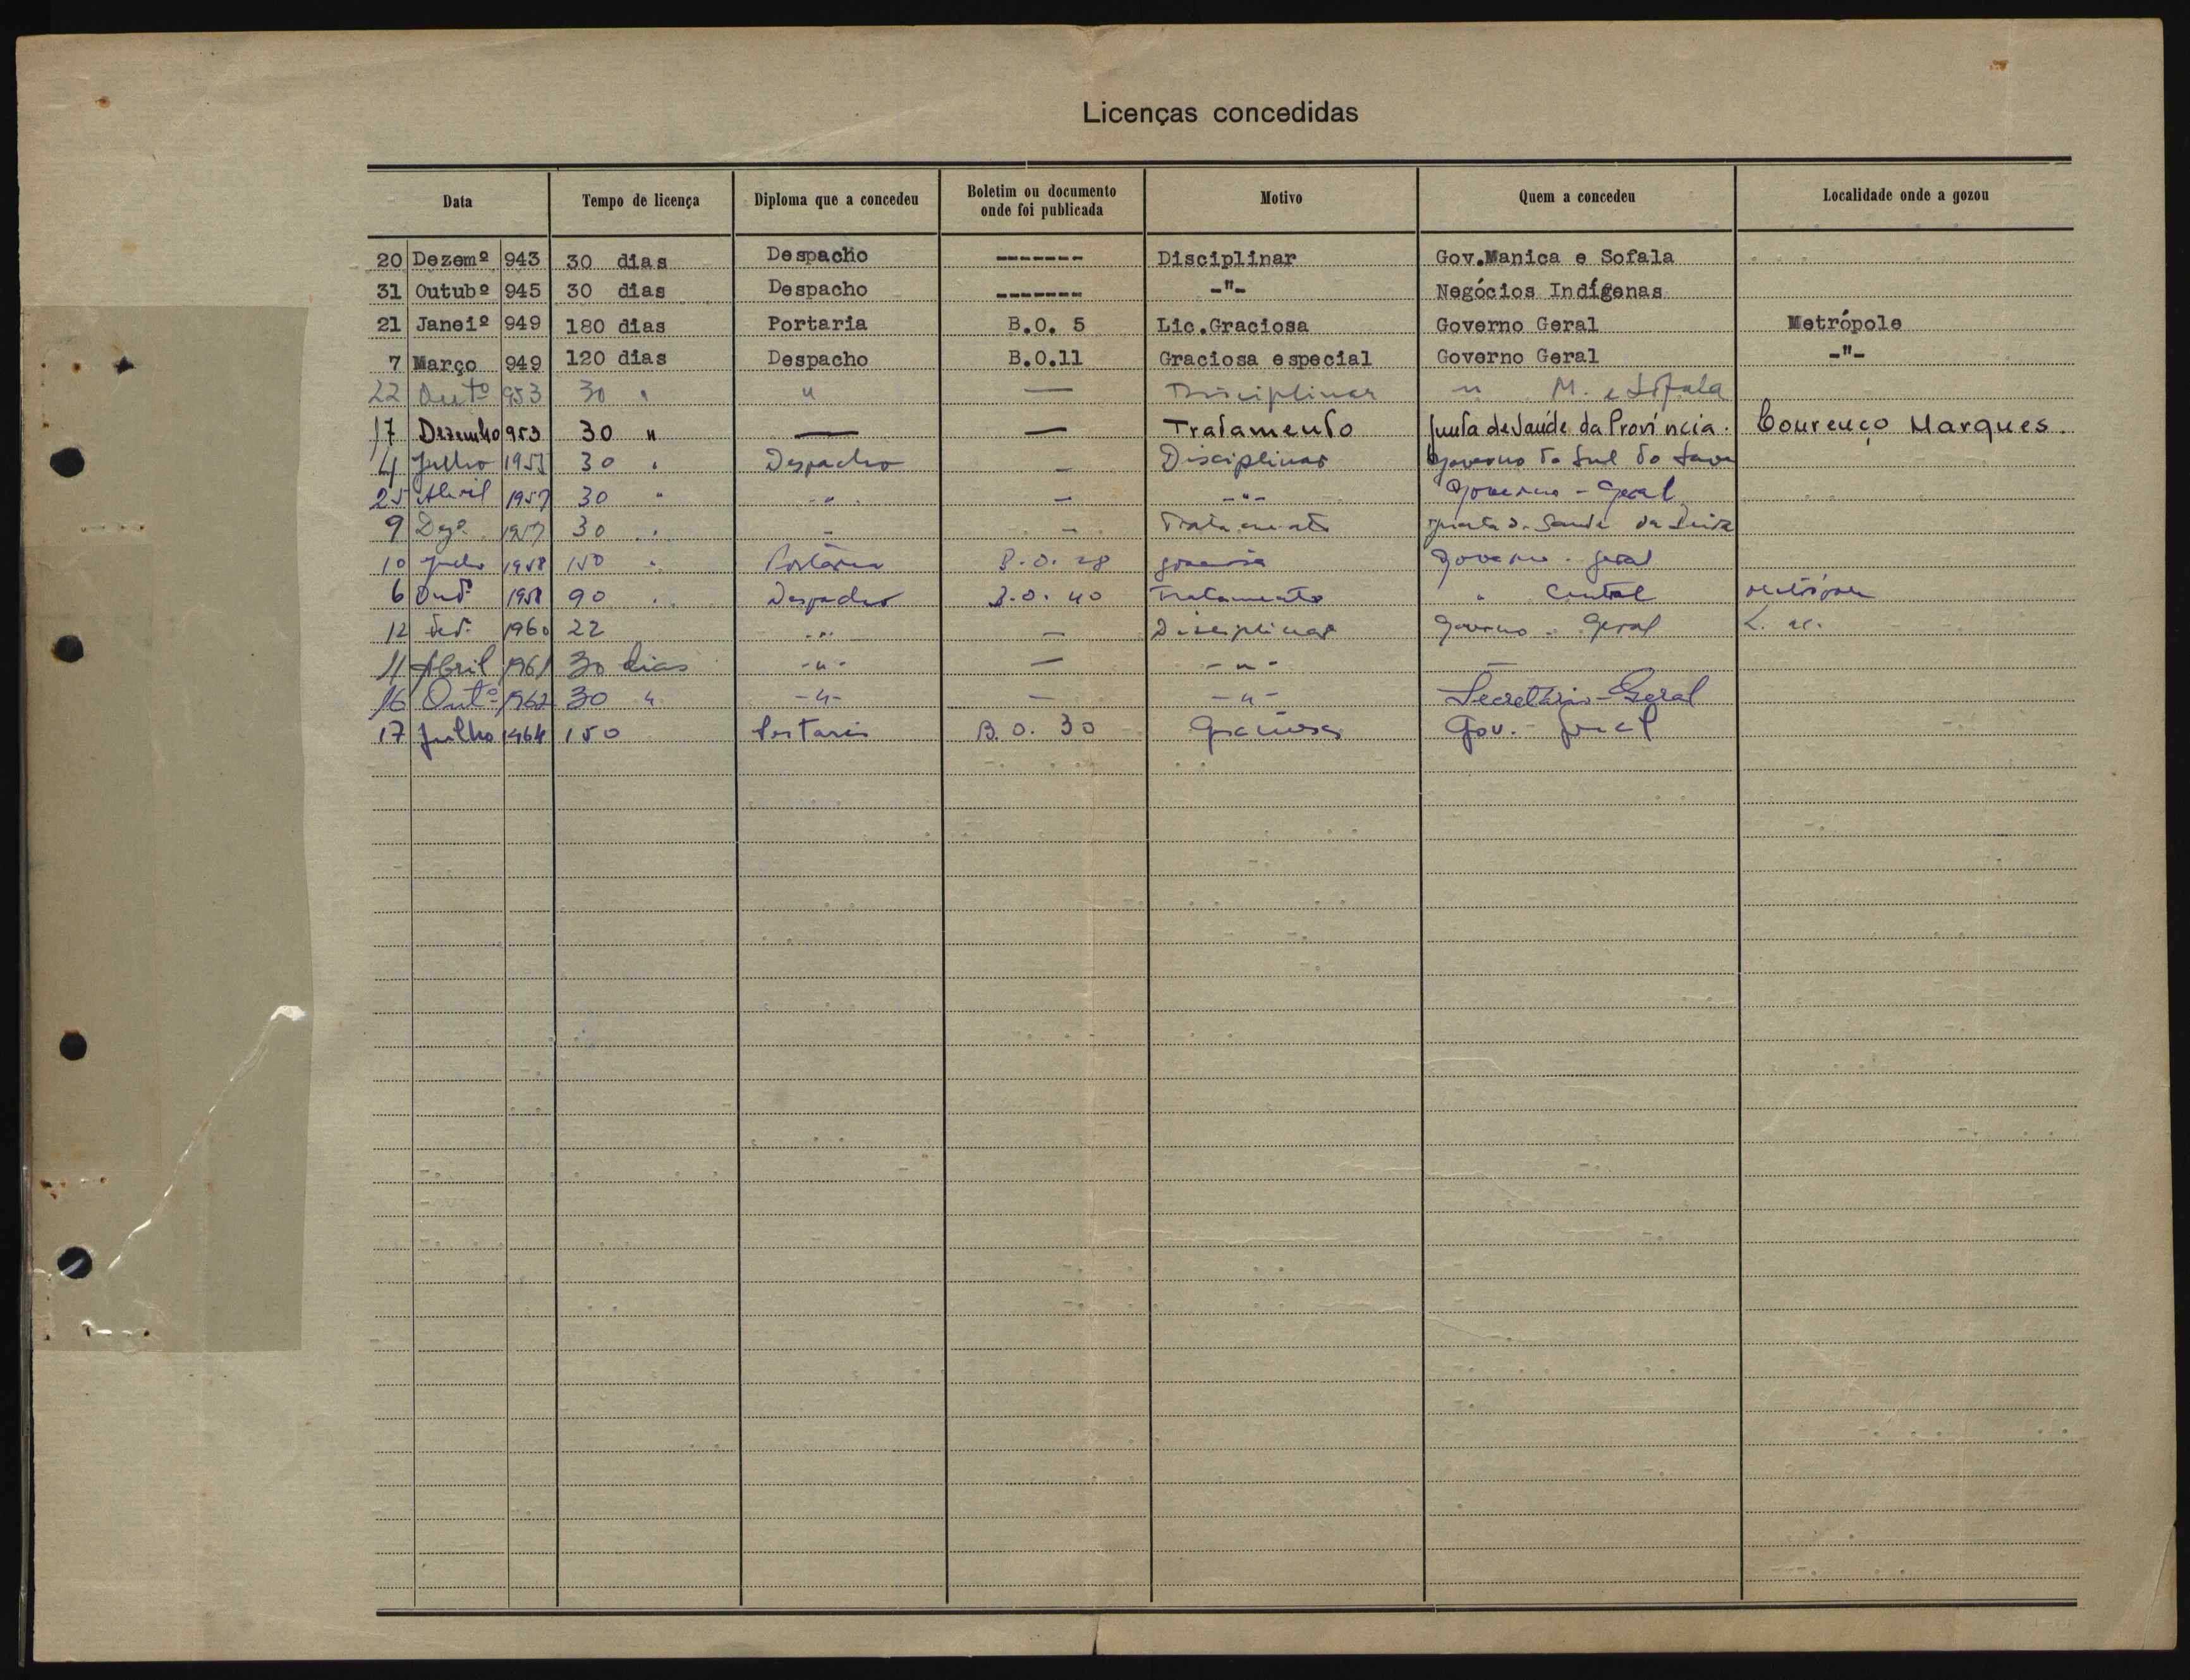 Licenças concedidas
Data Tempo de licença Diploma que a concedeu Boletim ou documento onde foi publicada Motivo Quem a concedeu Localidade onde a gozou
20 Dezemº 943 30 dias Despacho ------- Disciplinar Gov.Manica e Sofala
31 Outubº 945 30 dias Despacho ------- -"- Negócios Indígenas
21 Janeiº 949 180 dias Portaria B.O. 5 Lic.Graciosa Governo Geral Metrópole
7 Março 949 120 dias Despacho B.O.11 Graciosa especial Governo Geral -"-
22 Outº 953 30 " " — Disciplinar " M. e Sofala
17 Dezembro 953 30 " — — Tratamento Junta de Saúde da Província. Lourenço Marques.
4 Julho 1955 30 " Despacho — Disciplinar Governo do Sul do Save
25 Abril 1957 30 " -"- — -"- Governo-Geral
9 Dezº 1957 30 " " — Tratamento Junta de Saude da
10 1958 150 " Portaria B.O. 28 graciosa Governo-geral
6 Outº 1958 90 " Despacho B.O. 40 Tratamento " Central metrópole
12 Fevº 1960 22 -"- — Disciplinar Governo-Geral L. M.
11 Abril 1961 30 dias -"- — -"- —
16 Outº 1962 30 " -"- — -"- Secretário-Geral
17 Julho 1964 150 Portaria B.O. 30 Graciosa Gov.-Geral